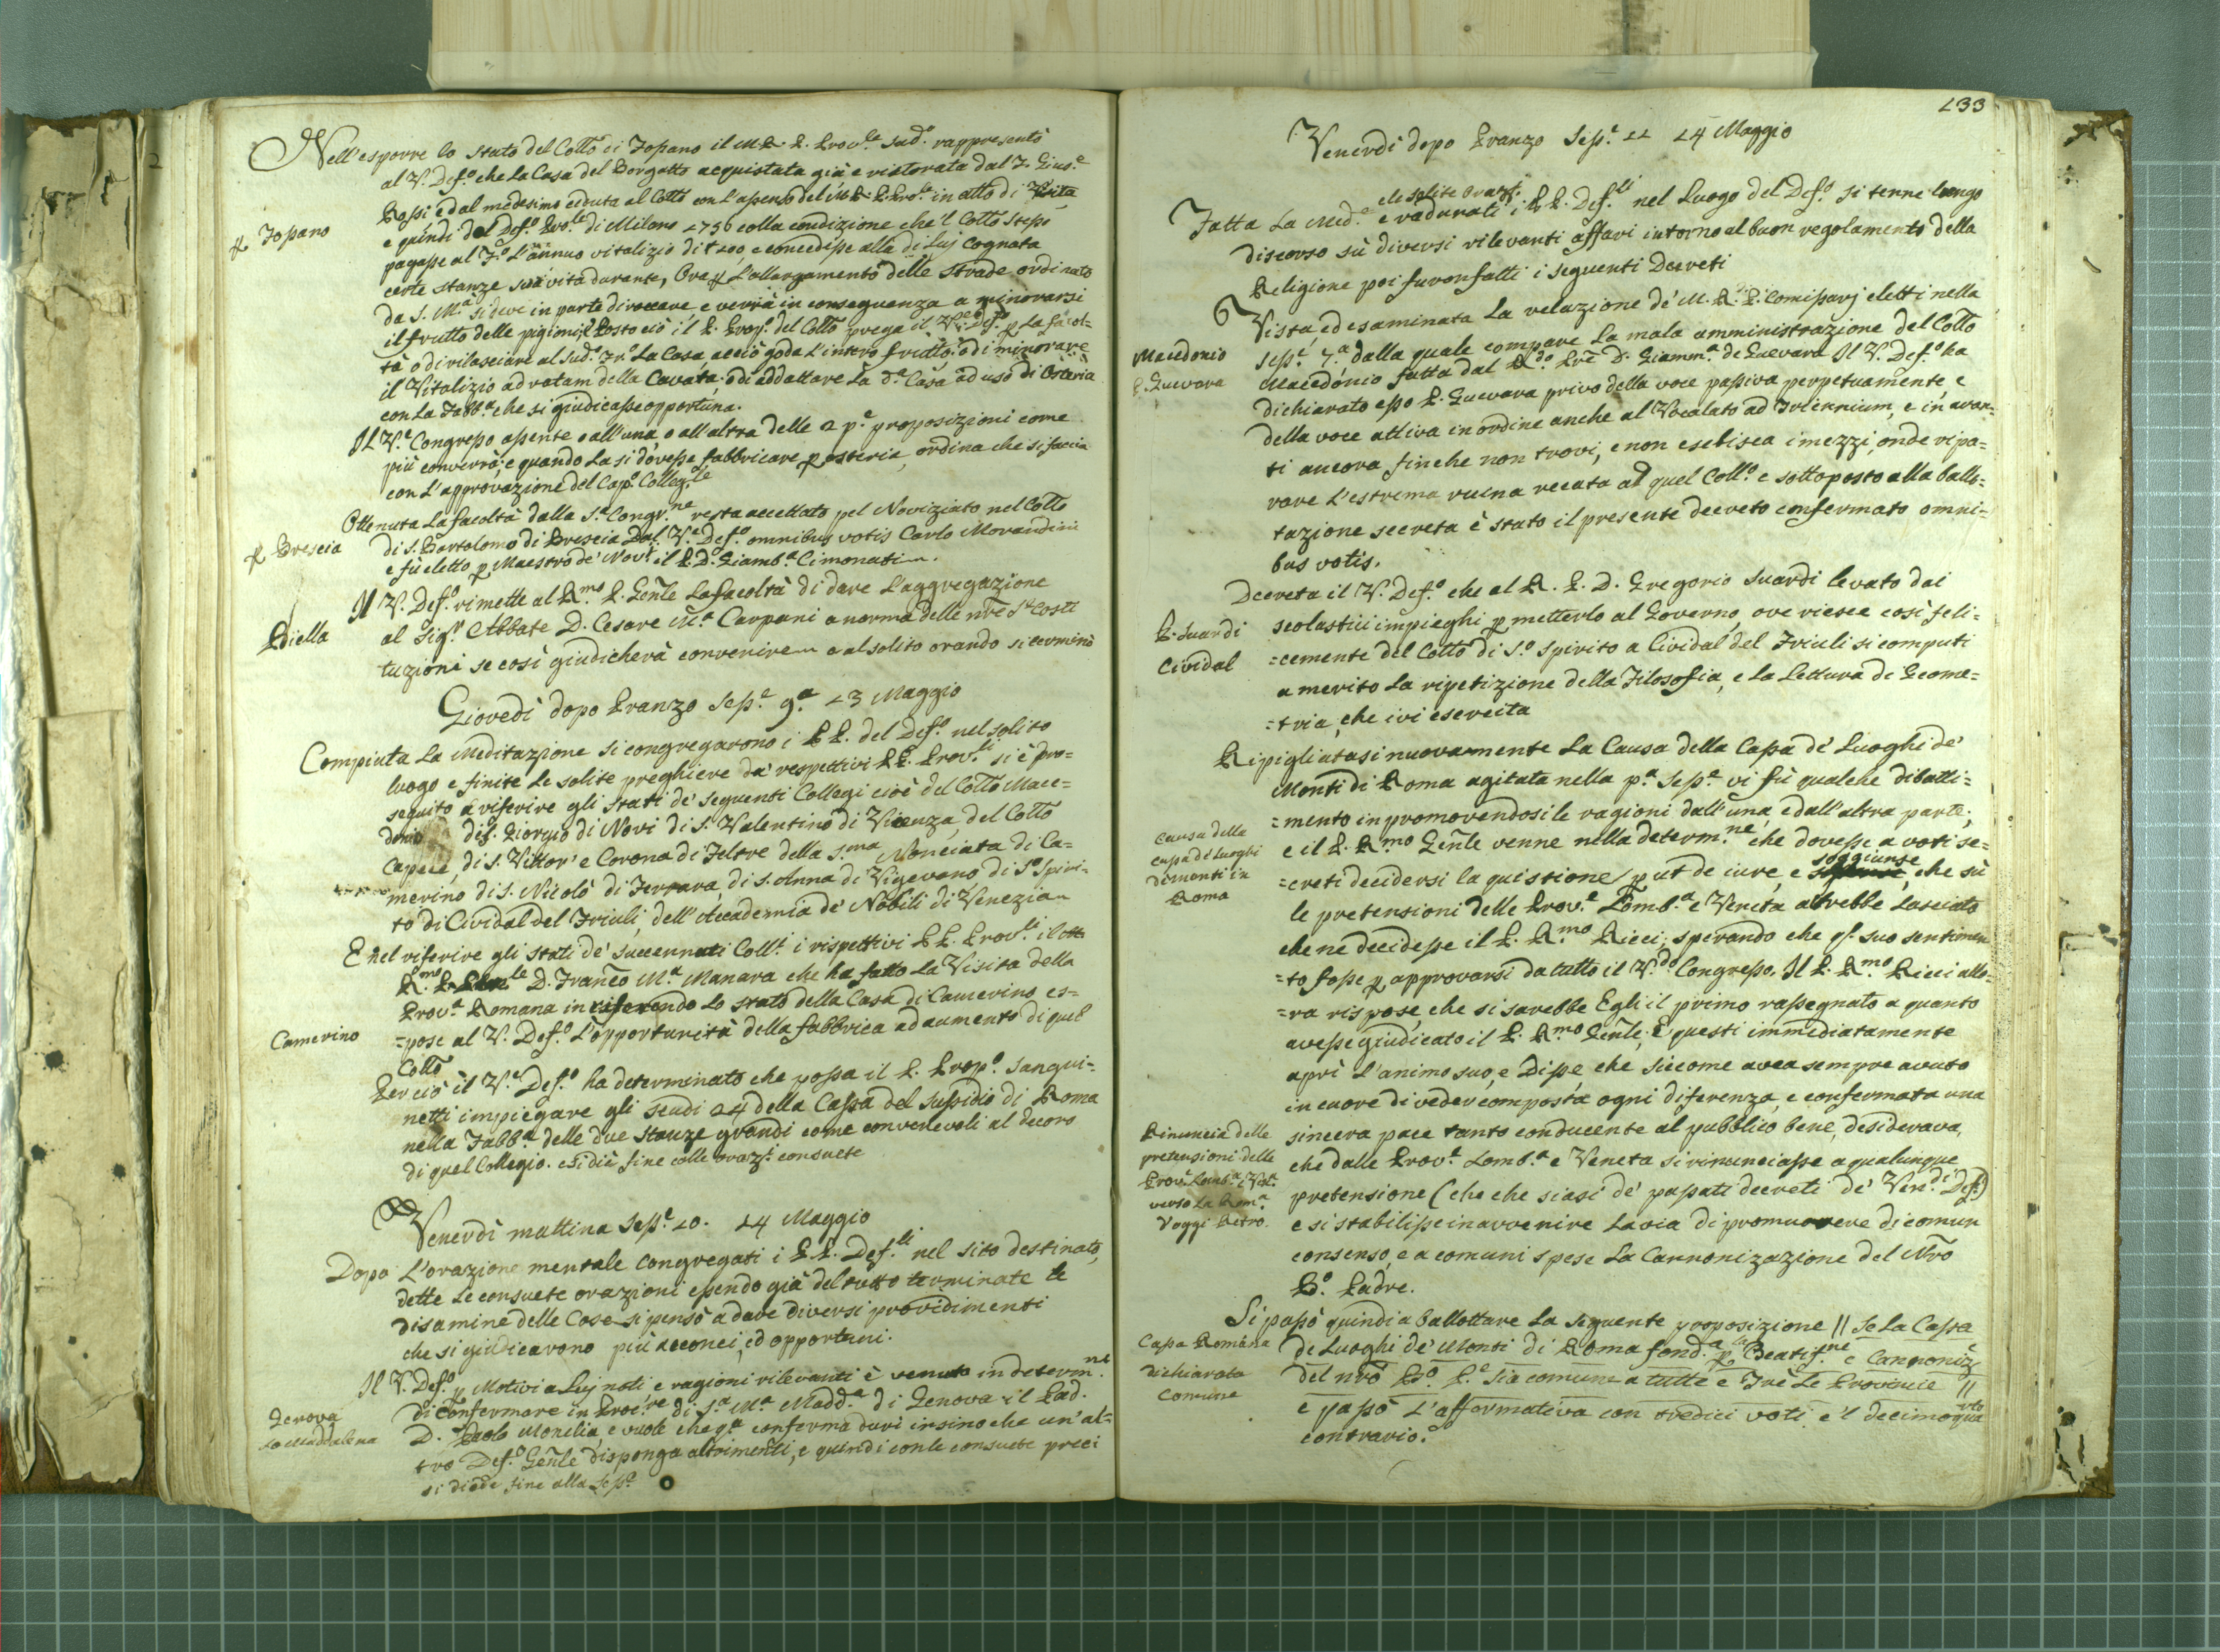 Nell'esporre lo stato del Collo di Fossano il M. R. P. Prov.le sud.o rappresentò
al V. Def.o che la Casa del Borgatto acquistata già e ristorata dal F. Gius.e
Rossi, e dal medesimo ceduta al Collo con l'assenso del M. R. P. Prov.le in atto di Visita
p Fossano
e quindi dal Def.o Pro.le di Milano 1756 colla condizione che 'l Collo stesso
pagasse al F.o L'annuo vitalizio di 200, e concedesse alla di Lui Cognata
certe stanze sua vita durante, Ora p L'allargamento delle strade ordinato
da S. M.a si deve in parte diroccare, e verrà in conseguenza a minorarsi
il frutto delle pigioni: Posto ciò il P. Prop. del Collo prega il V.e Def.o p La facol-
tà o di rilasciare al Sud.o Fr.o La Casa acciò goda L'intero frutto, o di minorare
il Vitalizio ad ratam della Cavata, o di addattare La d.a Casa ad uso di Osteria
con La Fabb.a che si giudicasse opportuna.
Il V.e Congresso assente o all'una, o all'altra delle 2 p.e proposizioni come
più converrà, e quando La si dovesse fabbricare p osteria, ordina che si faccia
con L'approvazione del Cap.o Colleg.le
Ottenuta La facoltà dalla S.a Congr.ne resta accettato pel Noviziato nel Collo
p Brescia
di S. Bartolomeo di Brescia Dal V.e Def.o omnibus votis Carlo Morandini
e fù eletto p Maestro de' Nov.i il P. D. Giamb.a Cimonati
Il V. Def.o rimette al R.mo P. Gen̄le La facoltà di dare L'aggregazione
Biella
al Sig.r Abbate D. Cesare M.a Carpani a norma delle nr̄e S.e Costi
tuzioni se così giudicherà convenire e al solito orando si terminò
Giovedì dopo Pranzo Sess.e 9.a 13 Maggio
Compiuta La Meditazione si congregarono i P P. del Def.o nel solito
luogo e finite Le solite preghiere da' respettivi P P. Prov.li si è pro-
seguito a riferire gli stati de' seguenti Collegi cioè del Collo Mace-
donio di S. Giorgio di Novi di S. Valentino di Vicenza, del Collo
Capece, di S. Vittor' e Corona di Feltre della S.ma Nonciata di Ca-
merino di S. Nicolò di Ferrara, di S. Anna di Vigevano, di S.o Spiri-
to di Cividal del Friuli, dell'Accademia de' Nobili di Venezia
E nel riferire gli stati de' succennati Coll.i i rispettivi P P. Prov.li il
R.mo P. D. Franc̄o M.a Manara che ha fatto La Visita della
Prov.a Romana in riferendo Lo stato della Casa di Camerino, es-
Camerino
=pose al V. Def.o L'opportunità della fabbrica ad aumento di quel
Collo
Perciò il V.e Def.o ha determinato che possa il P. Prop.o Sangui-
netti impiegare gli scudi 24 della Cassa del sussidio di Roma
nella Fabb.a delle due stanze grandi come convenevoli al decoro
di quel Collegio. e si diè fine colle oraz.i consuete
Venerdì mattina Sess.e 10. 14 Maggio
Dopo L'orazione mentale congregati i P P. Def.li nel sito destinato,
dette Le consuete orazioni essendo già del tutto terminate le
disamine delle Case si pensò a dare diversi providimenti
che si giudicarono più acconci, ed opportuni.
Il V. Def.o p Motivi a Luj noti e ragioni rilevanti è venuto in determ.ne
Genova
La Maddalena
di Confermare in Proc.re di S.a M.a Madd.a di Genova il Pad.
D. Paolo Monilia, e vuole che q.a conferma duri insino che un'al-
tro Def.o Gen̄le disponga altrimenti, e quindi con le consuete preci
si diede fine alla Sess.e
133
Venerdì dopo Pranzo Sess.e 11 14 Maggio
e le solite oraz.i
Fatta La Med.e e radunati i P P. Def.li nel Luogo del Def.o si tenne lungo
discorso sù diversi rilevanti affari intorno al buon regolamento della
Religione poi furon fatti i seguenti Decreti
Vista, ed esaminata La relazione de' M. R. P. Comissarj eletti nella
Macedonio
P. Guevara
Sess.e 7.a dalla quale compare La mala amministrazione del Collo
Macedonio fatta dal R.do Prē D. Giamm.a de Guevara Il V. Def.o ha
dichiarato esso P. Guevara privo della voce passiva perpetuamente, e
della voce attiva in ordine anche al Vocalato ad Triennium, e in avan-
ti ancora finche non trovi, e non esebisca i mezzi, onde ripa-
rare L'estrema ruina recata al quel Coll.o e sottoposto alla ballo-
tazione secreta è stato il presente decreto confermato omni-
bus votis.
Decreta il V. Def.o che al R. P. D. Gregorio Suardi levato dai
P. Suardi
Cividal
scolastici impieghi p metterlo al Governo, ove riesce così feli-
=cemente del Collo di S.o Spirito a Cividal del Friuli si computi
a merito La ripetizione della Filosofia, e La Lettura di Geome-
=tria, che ivi esercita
Ripigliatasi nuovamente La Causa della Cassa de' Luoghi de'
Monti di Roma agitata nella p.a Sess.e vi fù qualche dibatti-
=mento in promovendosi le ragioni dall'una, e dall'altra parte;
causa della
cassa de' Luoghi
de monti in
Roma
e il P. R.mo Gen̄le venne nella determ.ne che dovesse a voti se-
=creti decidersi la quistione, p ut de iure, e soggiunse, che sù
le pretensioni delle Prov.e Lomb.a e Veneta avrebbe Lasciato
che ne decidesse il P. R.mo Ricci; sperando che q.o suo sentimen
=to fosse p approvarsi da tutto il V.do Congresso. Il P. R.mo Ricci allo-
=ra rispose, che si sarebbe Egli il primo rassegnato a quanto
avesse giudicato il P. R.mo Gen̄le, E questi immediatamente
aprì L'animo suo, e Disse che siccome avea sempre avuto
in cuore di veder composta ogni diferenza, e confermata una
Rinuncia delle
pretensioni delle
Prov. Lomb.a e Ven.a
verso La Rom.a
V oggi Retro.
sincera pace tanto conducente al pubblico bene, desiderava,
che dalle Prov.e Lomb.a e Veneta si rinunciasse a qualunque
pretensione (che che siasi de' passati decreti de' Ven.di Def.)
e si stabilisse in avvenire La via di promuovere di comun
consenso, e a comuni spese La Cannonizazione del Nr̄o
B.o Padre.
Si passò quindi a ballottare La seguente proposizione || Se La Cassa
Cassa Romana
dichiarata
Comune
de Luoghi de' Monti di Roma fond.a p la Beatif.ne e Cannoniz.e
del nr̄o B.o P.e sia comune a tutte e Trè Le Provincie ||
e passò L'affermativa con tredici voti e 'l decimoquarto
contrario.